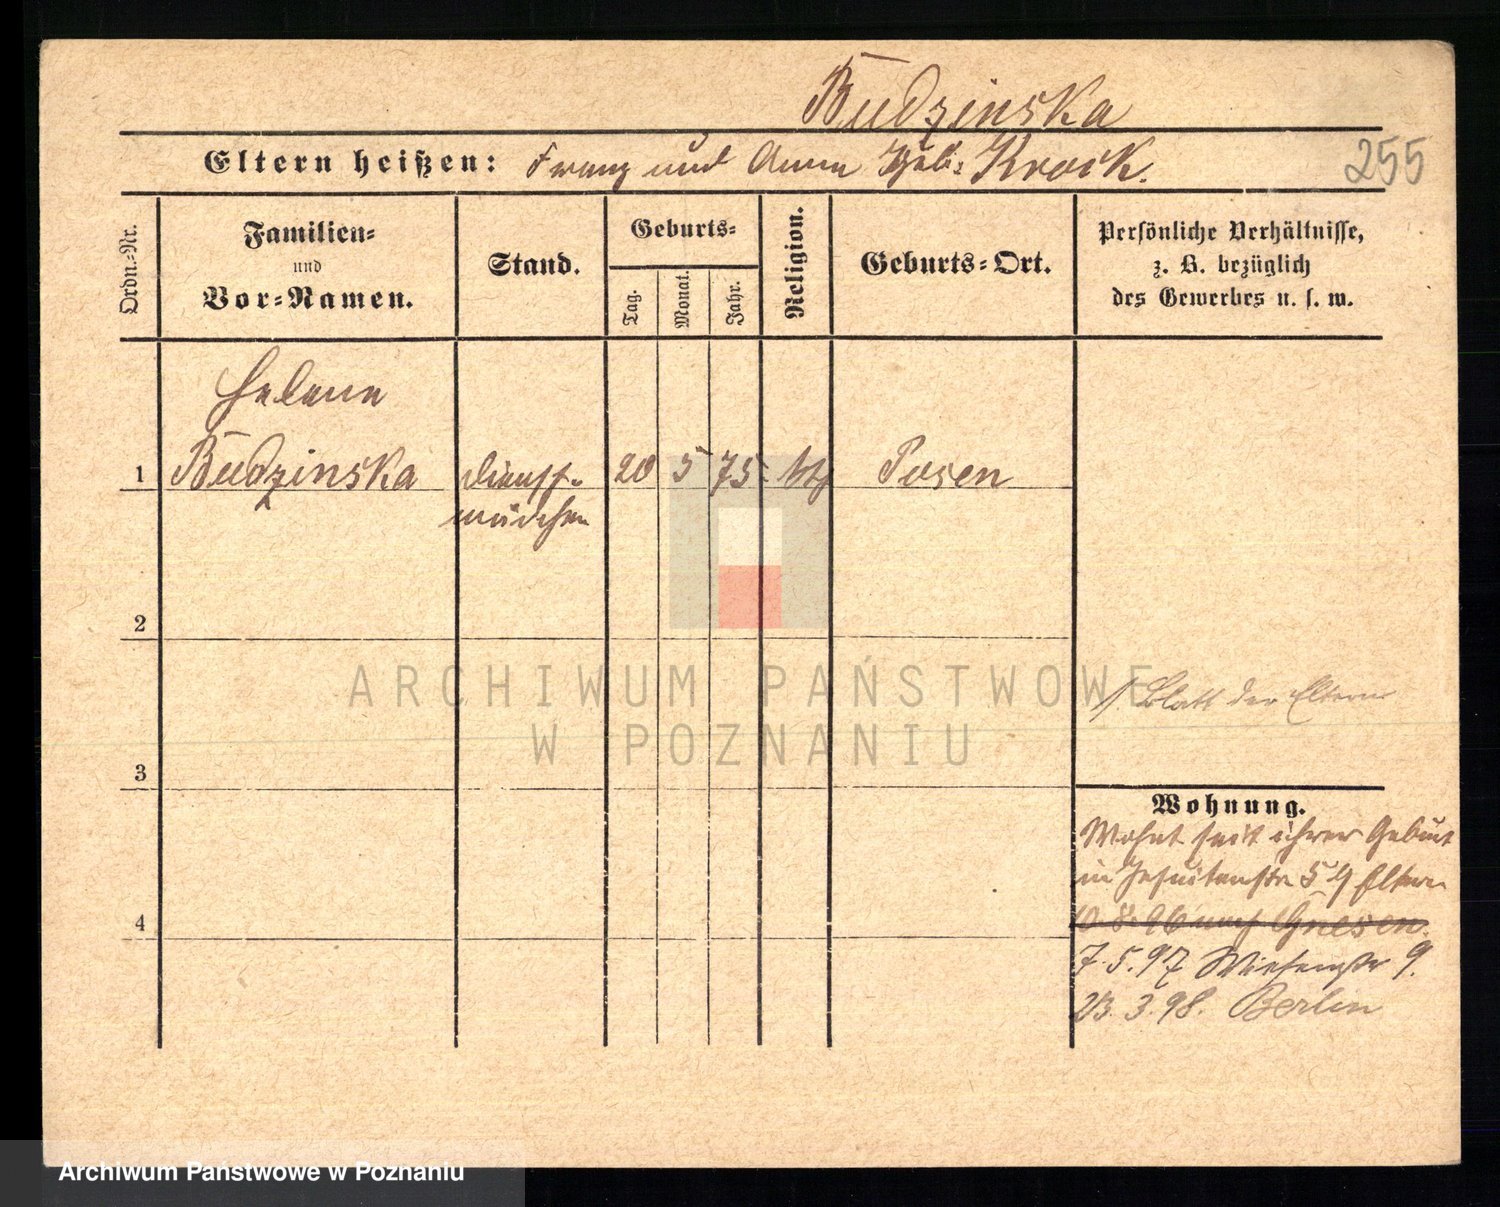 Budzinska
Eltern heißen: Franz und Anna geb: Krock.
255
Ordn.-Nr.
Familien-
und
Vor-Namen.
Stand.
Geburts-
Tag.
Monat.
Jahr.
Religion.
Geburts-Ort.
Persönliche Verhältnisse,
z. B. bezüglich
des Gewerbes u. s. w.
Helene
1 Budzinska Dienst- 20 5 75 Posen
mädchen
2
ARCHIWUM PAŃSTWOWE
W POZNANIU
Blatt der Eltern
3
Wohnung.
Wohnt seit ihrer Geburt
in Jesuitenstr 5 Eltern
4
10.8.96 nach Gnesen.
7.5.97 Wiesenstr 9.
23.3.98. Berlin
Archiwum Państwowe w Poznaniu